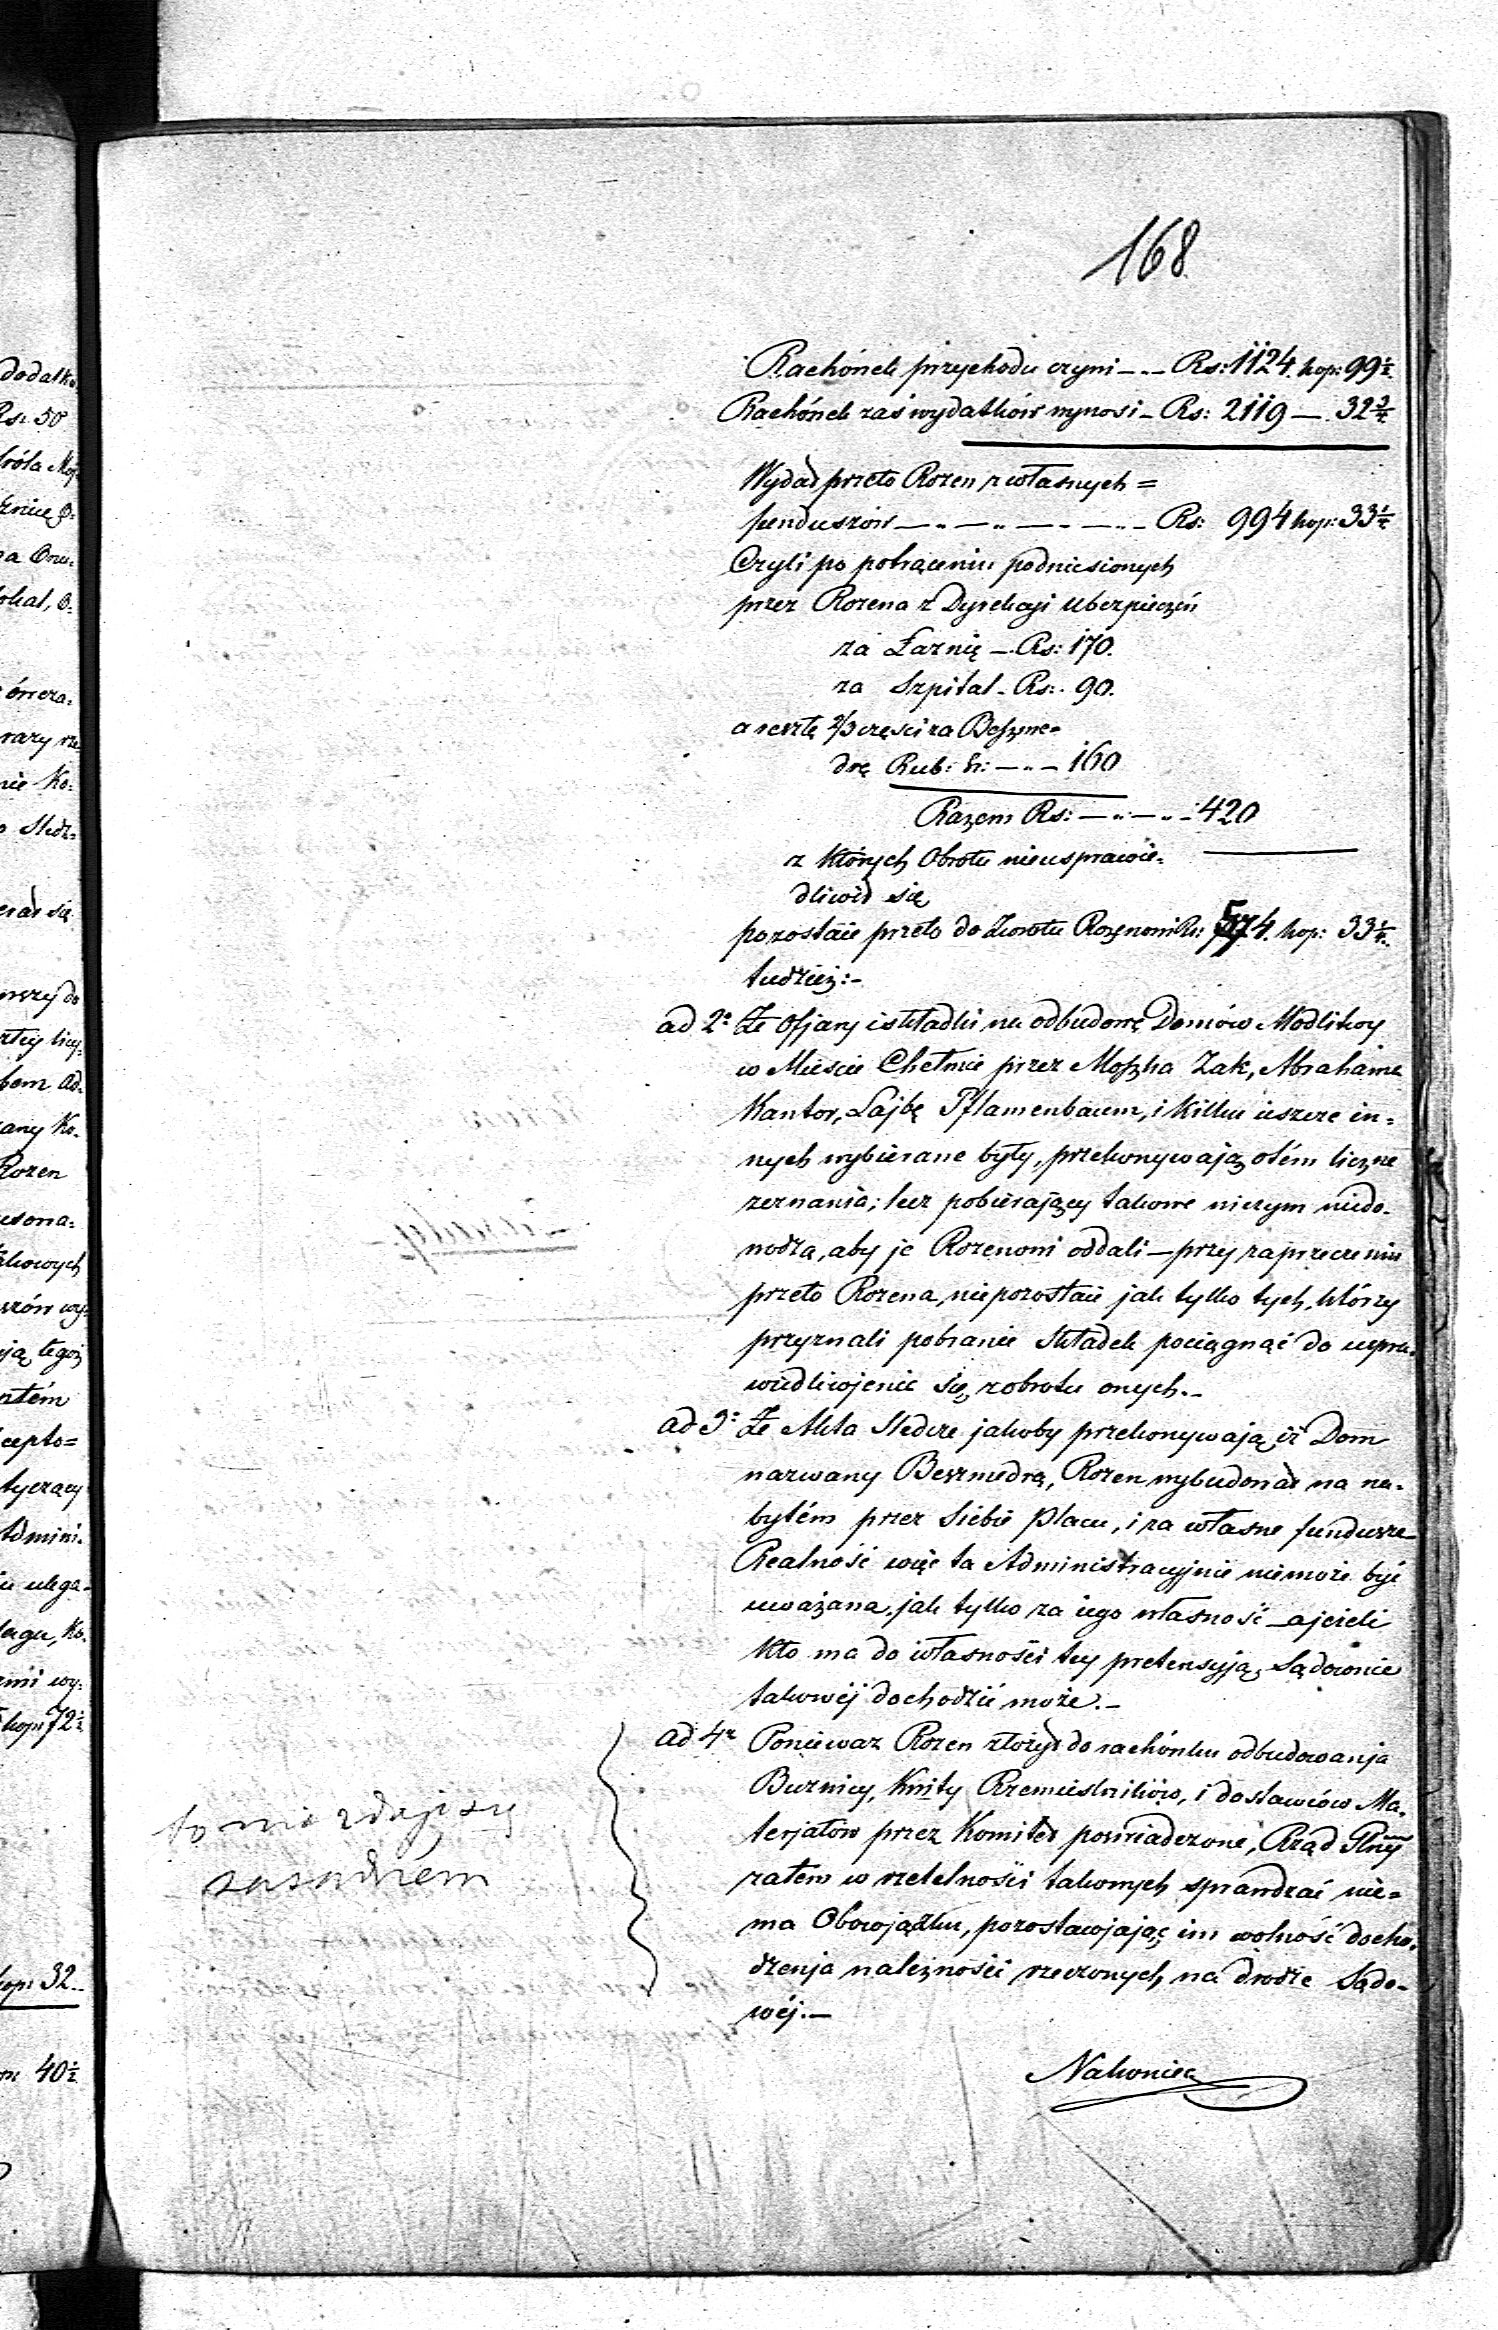 168
Rachónek przychodu czyni — Rs: 1124. kop: 99½
Rachónek zaś wydatków wynosi — Rs: 2119 — 32¾
Wydał przeto Rozen z własnych =
funduszów — „ — „ — „ — „ — Rs: 994 kop: 33¼
Czyli po potrąceniu podniesionych
przez Rozena z Dyrekcyi Ubezpieczeń
za Łaznię — Rs: 170.
za Szpital - Rs: 90.
a resztę ⅔ części za Beszme=
drę Rub: sr: — „ — 160
Razem Rs: — „ — „ — 420
z których Obrotu nieusprawie=
dliwił się
pozostaie przeto do Zwrotu Rozenowi Rs: 574. kop: 33¼.
tudzież:-
ad 2º Że ofjary i składki na odbudowę Domów Modlitwy
w Mieście Chełmie przez Moszka Zak, Abrahama
Kantor, Lajbę Pflamenbaum, i kilku ieszcze in=
nych wybierane były, przekonywają o tém liczne
zeznania; lecz pobierający takowe niczym niedo=
wodzą, aby je Rozenowi oddali — przy zaprzeczeniu
przeto Rozena, niepozostaie jak tylko tych, którzy
przyznali pobranie Składek pociągnąć do uspra=
wiedliwjenie się z obrotu onych.-
ad 3º Że Akta Śledcze jakoby przekonywają iż Dom
nazwany Beszmedrą, Rozen wybudował na na=
bytém przez Siebie Placu, i za własne fundusze
Realność więc ta Administracyjnie niemoże być
uważana, jak tylko za iego własność — a jeżeli
kto ma do własności tey pretensyją, Sądownie
takowéj dochodzić może.-
ad 4º Poniewaz Rozen złożył do rachónku odbudowanja
Buznicy, Kwity Rzemieslników, i dostawców Ma=
terjałów przez Komitet poświadczone, Rząd Glny
zatem w rzetelności takowych sprawdzać nie=
ma Obowjązku, pozostawjając im wolność docho=
dzenja należności rzeczonych na drodze Sądo=
wéj.—
to nie zdaje się
zasadném
Nakoniec